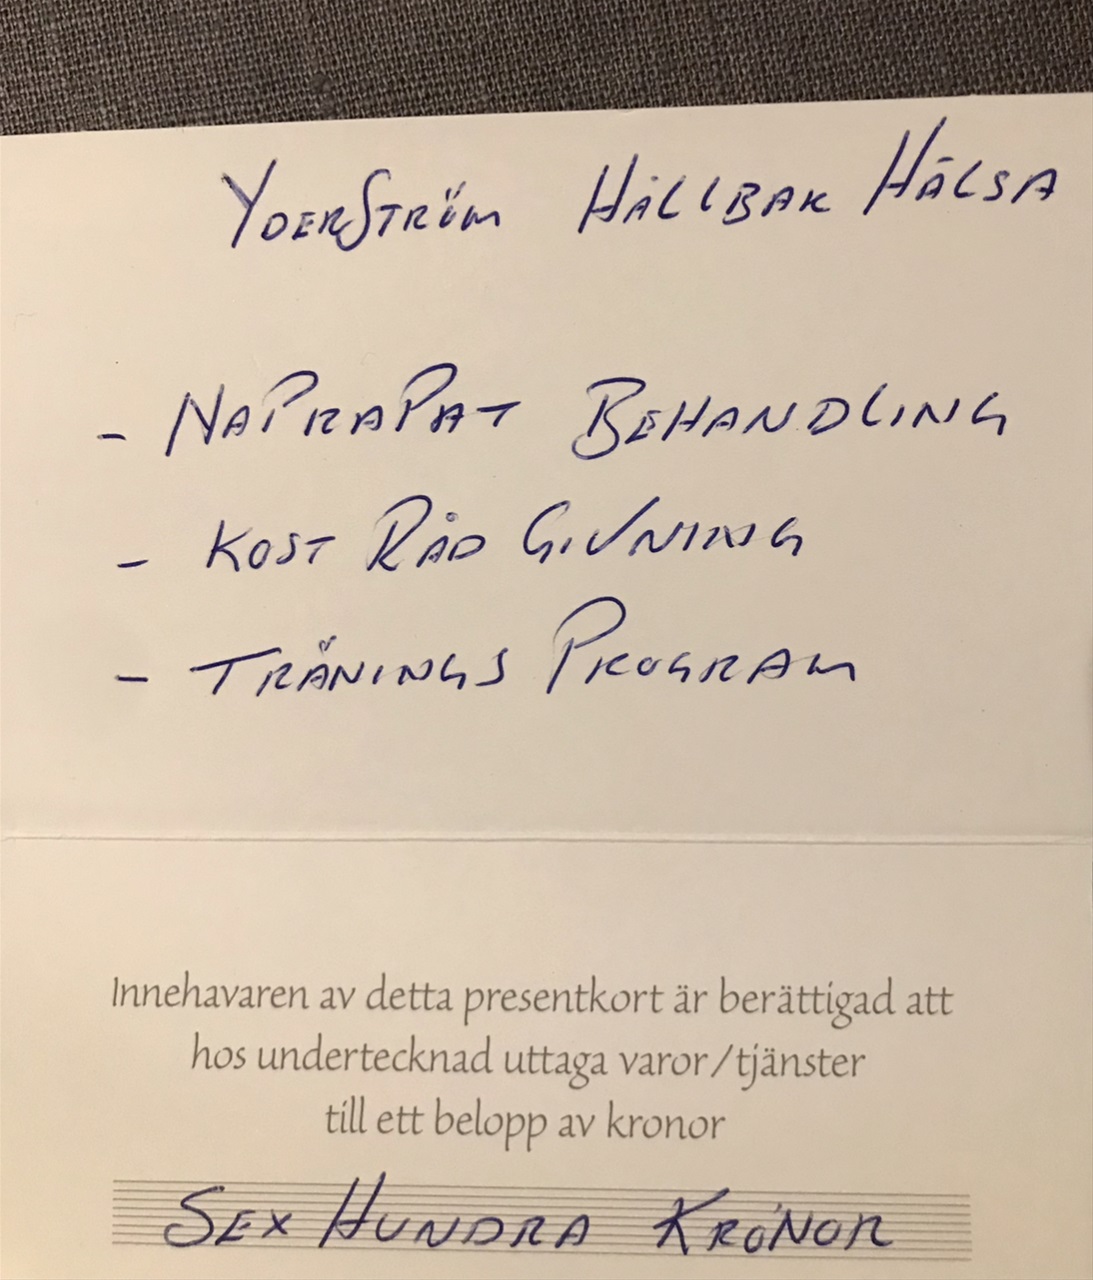 YDERSTRÖM HÅLLBAR HÄLSA
- NAPRAPAT BEHANDLING
- KOST RÅD GIVNING
- TRÄNINGS PROGRAM
Innehavaren av detta presentkort är berättigad att
hos undertecknad uttaga varor/tjänster
till ett belopp av kronor
SEX HUNDRA KRONOR